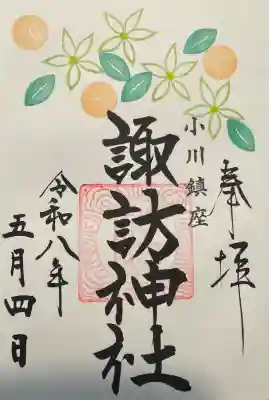 奉拝
小川鎮座
諏訪神社
令和八年
五月四日